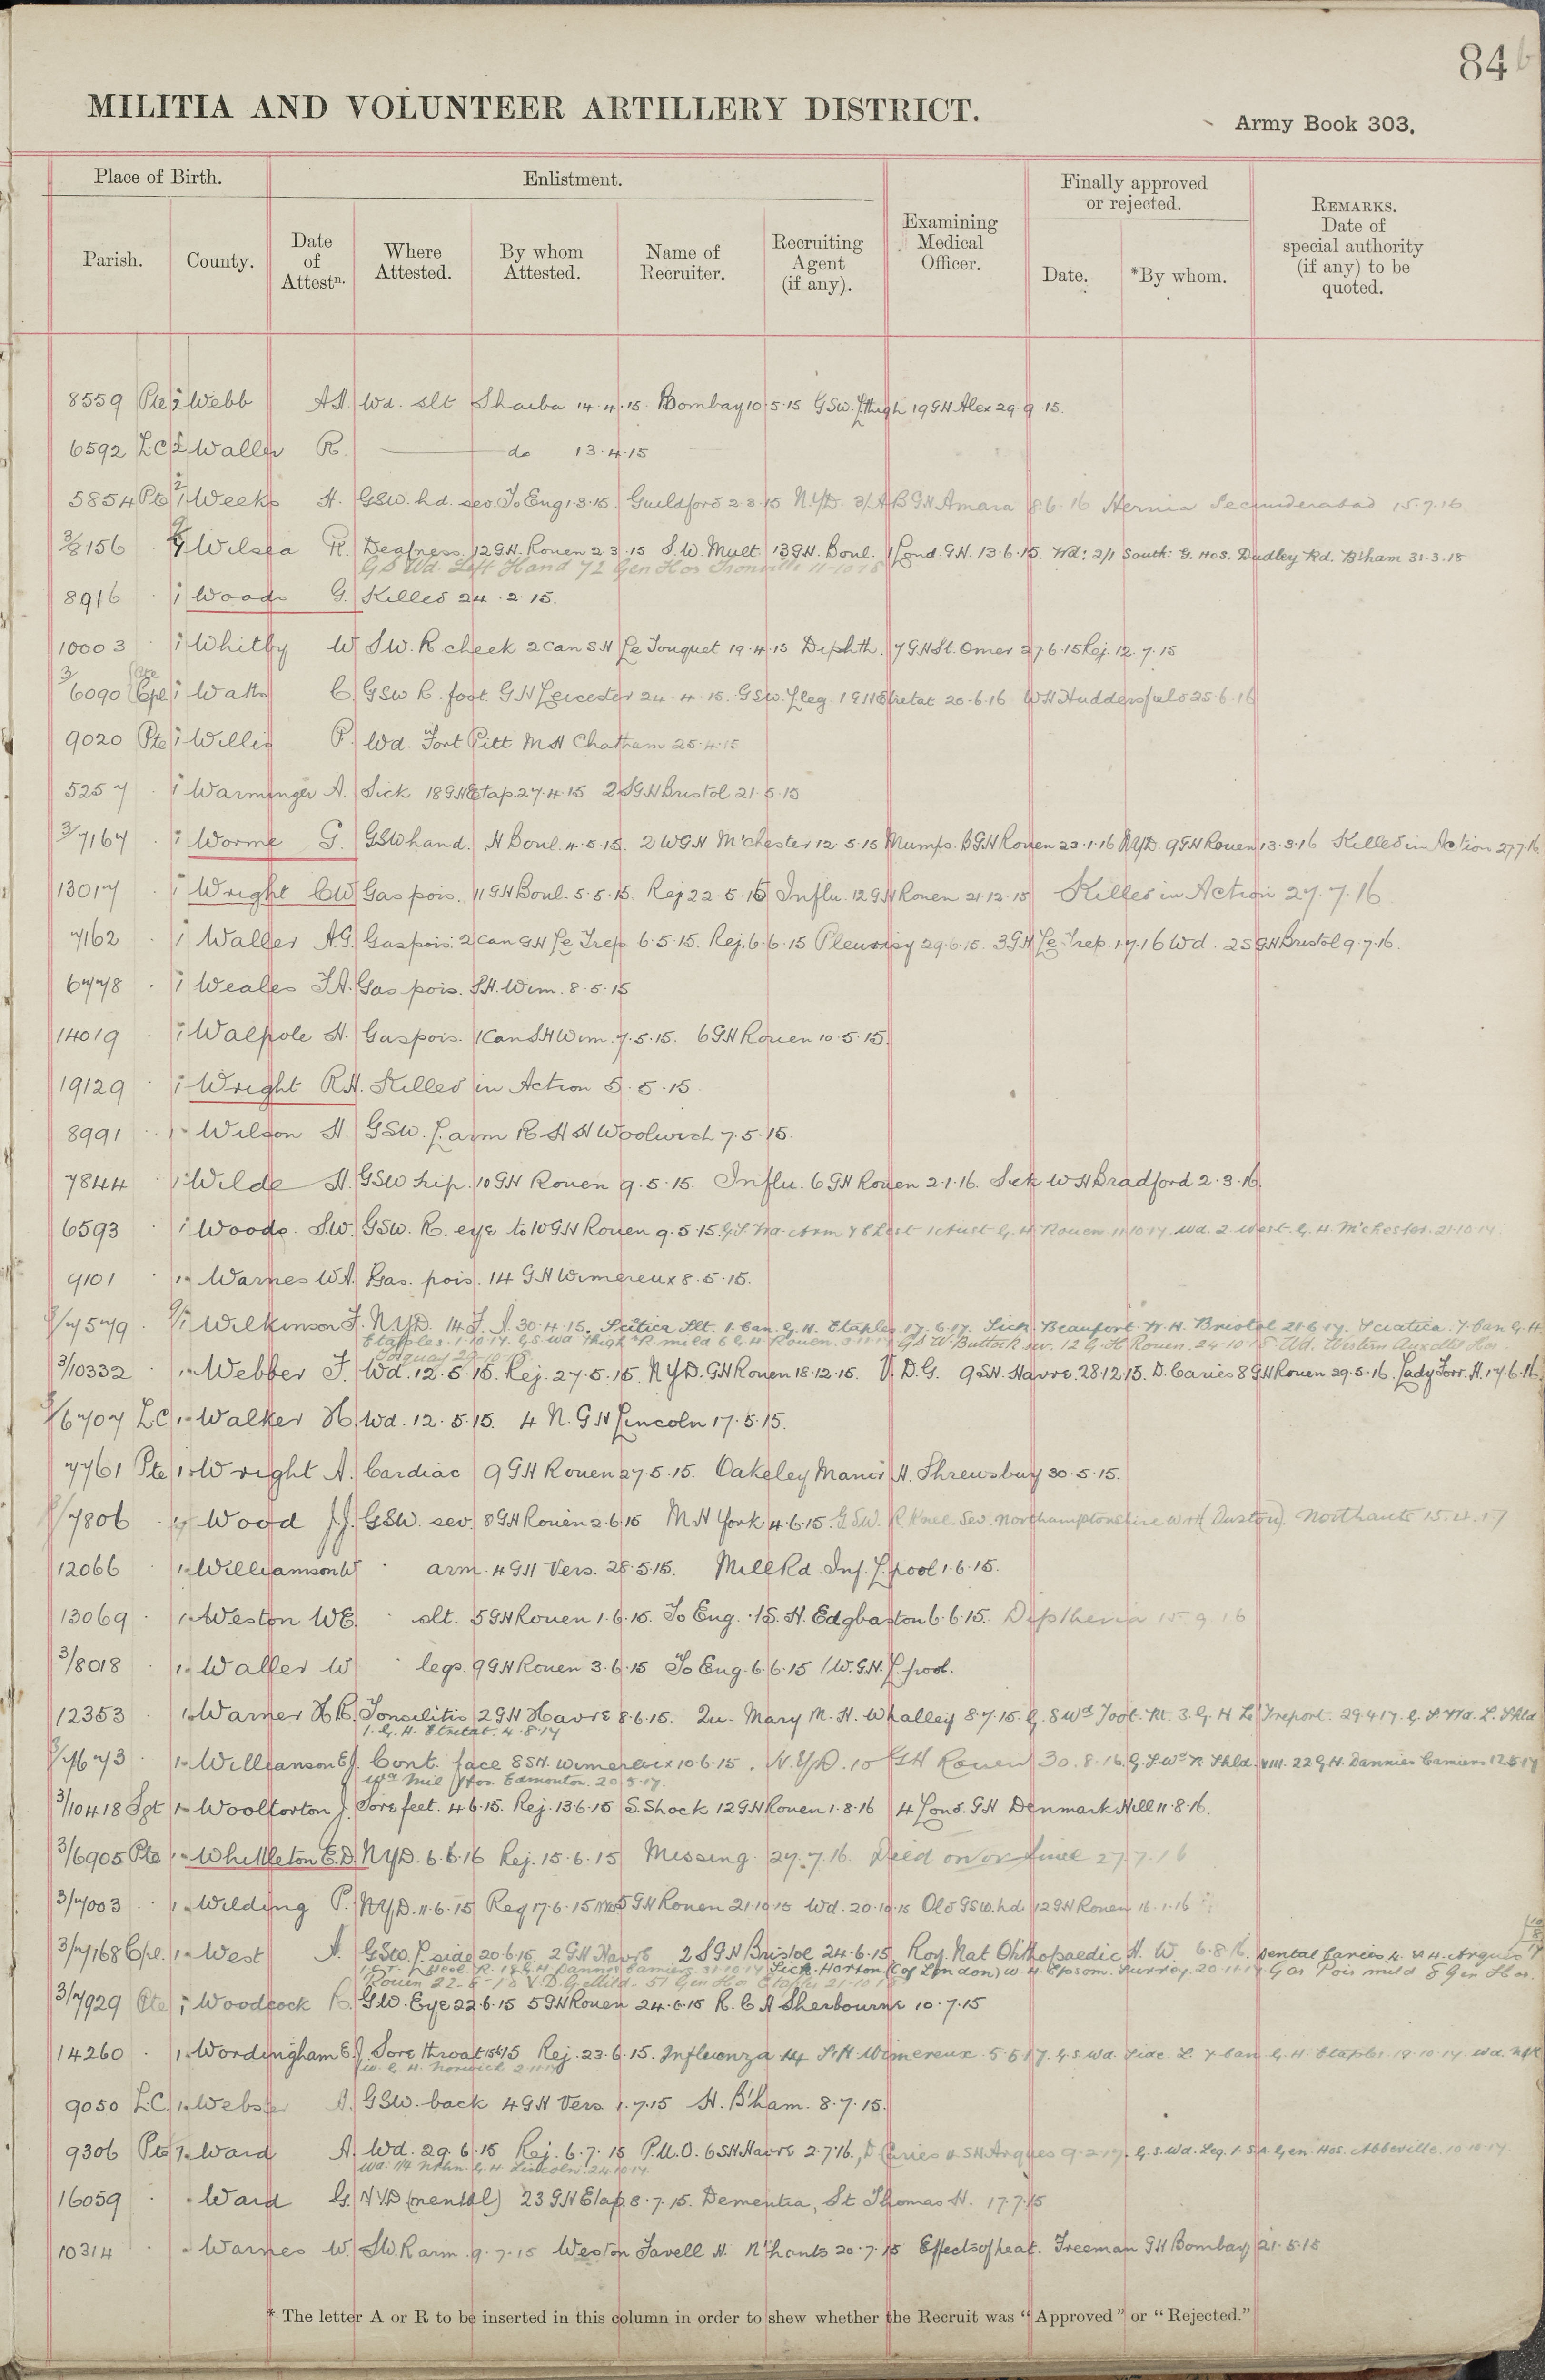 84b
MILITIA AND VOLUNTEER ARTILLERY DISTRICT.
Army Book 303.
Place of Birth. Enlistment. Examining Medical Officer. Finally approved or rejected. REMARKS. Date of special authority (if any) to be quoted.
Parish. County. Date of Attestn. Where Attested. By whom Attested. Name of Recruiter. Recruiting Agent (if any). Date. *By whom.
8559 Pte 2 Webb A. Wd. slt Shaiba 14.4.15. Bombay 10.5.15 GSW. thigh 19 GH Alex 29.9.15.
6592 L.C 2 Waller R. do 13.4.15
5854 Pte 2/1 Weeks H. GSW. hd. sev. To Eng 1.3.15. Guildford 2.3.15 N.Y.D. 3/A B.G.H Amara 8.6.16 Hernia Secunderabad 15.7.16
3/8156 Wilsea R. Deafness. 12 GH. Rouen 2 3.15 S.W. Mult. 13 GH. Boul. 1 Lond. GH. 13.6.15. Wd: 2/1 South: G. Hos. Dudley Rd. B'ham 31.3.18
G S Wd. Left Hand 72 Gen Hos Trouville 11-10-18
8916 1 Woods G. Killed 24.2.15.
10003 1 Whitby W SW. R cheek 2 Can SH Le Touquet 19.4.15 Diphth. 7 GH St. Omer 27.6.15 Rej. 12.7.15
3/6090 Cpl 1 Watts C. GSW R. foot. GH Leicester 24.4.15. GSW. L leg. 1 GH Etretat 20.6.16 WH Huddersfield 25.6.16
9020 Pte 1 Willis P. Wd. Fort Pitt MH Chatham 25.4.15
5257 1 Warminger A. Sick 18 GH Etap. 27.4.15 2 SGH Bristol 21.5.15
3/7167 1 Worme G. GSW hand. H Boul. 4.5.15. 2 WGH M'chester 12.5.15 Mumps. BGH Rouen 23.1.16 NYD. 9 GH Rouen 13.3.16 Killed in Action 27.7.16
13017 1 Wright CW Gas pois. 11 GH Boul. 5.5.15. Rej 22.5.15 Influ. 12 GH Rouen 21.12.15 Killed in Action 27.7.16
7162 1 Waller A.G. Gas pois: 2 Can GH Le Trep 6.5.15. Rej. 6.6.15 Pleurisy 29.6.15. 3 GH Le Trep. 1.7.16 Wd. 2 SGH Bristol 9.7.16.
6778 1 Weales F.A. Gas pois. SH. Wim. 8.5.15
14019 1 Walpole H. Gas pois. 1 Can SH Wim. 7.5.15. 6 GH Rouen 10.5.15.
19129 1 Wright R.H. Killed in Action 5.5.15.
8991 1 Wilson H. GSW. L. arm R H H Woolwich 7.5.15.
7844 1 Wilde H. GSW hip. 10 GH Rouen 9.5.15. Influ. 6 GH Rouen 2.1.16. Sick WH Bradford 2.3.16.
6593 1 Woods. S.W. GSW. R. eye to 10 GH Rouen 9.5.15. G.S. Wd. Arm & Chest 1 Aust G. H Rouen 11.10.17. wd. 2 West. G. H. M'chester. 21.10.17.
9101 1 Warnes W.A. Gas. pois. 14 GH Wimereux 8.5.15.
3/7579 1 Wilkinson F. NYD. 14 F. A 30.4.15. Scitica Slt. 1. Can. G. H. Etaples 17.6.17. Sick. Beaufort W. H. Bristol 21.6.17. Sciatica. 7. Can G.H.
Etaples. 1.10.17. G.S. Wd Thigh R. mild 6 G.H. Rouen. GS W. Buttock sev. 12 G. H Rouen. 24.10.18. Wd. Western Auxiliary Hos
Torquay 29
3/10332 1 Webber F. Wd. 12.5.15. Rej. 27.5.15. NYD. GH Rouen 18.12.15. V. D. G. 9 SH. Havre. 28.12.15. D. Caries 8 GH Rouen 29.5.16. Lady Forr. H. 17.6.16.
3/6707 L.C 1 Walker H. Wd. 12.5.15. 4 N. GH Lincoln 17.5.15.
7761 Pte 1 Wright A. Cardiac 9 GH Rouen 27.5.15. Oakeley Manor H. Shrewsbury 30.5.15.
3/7806 1 Wood J.J. GSW. sev. 8 GH Rouen 2.6.15 MH York 4.6.15. GSW. R Knee. Sev. Northamptonshire W.H (Duston). Northants 15.4.17
12066 1 Williamson W arm. 4 GH Vers. 28.5.15. Mill Rd. Inf. L'pool 1.6.15.
13069 1 Weston WE. slt. 5 GH Rouen 1.6.15. To Eng. 1 S. H. Edgbaston 6.6.15. Diptheria 15.9.16
3/8018 1 Waller W legs. 9 GH Rouen 3.6.15 To Eng. 6.6.15 1 W.G.H. L'pool.
12353 1 Warner H R. Tonsilitis 2 GH Havre 8.6.15. Qu. Mary M. H. Whalley 8.7.15. G. S Wd Foot. Rt. 3. G. H Le Treport. 29.4.17. G. S Wd. L. Shld
1. G. H. Etretat 4.8.17
3/7673 1 Williamson E.J. Cont. face 8 SH. Wimereux 10.6.15. N.Y.D. 10 GH Rouen 30.8.16. G.S Wd R Shld. VIII. 22 G.H. Dannies Camiers 12.5.17
Wd Mil Hos. Edmonton. 20.5.17.
3/10418 Sgt 1 Wooltorton J. Sore feet. 4.6.15. Rej. 13.6.15 S. Shock 12 GH Rouen 1.8.16 4 Lond. GH Denmark Hill 11.8.16.
3/6905 Pte 1 Whittleton E.D. NYD. 6.6.16 Rej. 15.6.15 Missing. 27.7.16. Died on or since 27.7.16
3/7003 1 Wilding P. NYD. 11.6.15 Reg 17.6.15 5 GH Rouen 21.10.15 Wd. 20.10.15 Old GSW. hd. 12 GH Rouen 16.1.16
3/7168 Cpl. 1 West A. GSW. L side 20.6.15, 2 GH Havre 2 SGH Bristol 24.6.15, Roy. Nat Orthopaedic H. W. 6.8.16. Dental Caries 4. S H. Arques
18 G H Dannes Camiers 31.10.17 Sick. Horton (C of London) W. H. Epsom. Surrey. 20.11.17 Gas Pois mild 8 Gen Hos.
Rouen 22-6-18 V.D.G. Mild. 51 Gen Hos Etaples 21-10
3/7929 Pte 1 Woodcock GW. Eye 22.6.15 5 GH Rouen 24.6.15 R. C H Sherbourne 10.7.15
14260 1 Wordingham E.J. Sore throat 15.6.15 Rej. 23.6.15. Influenza 14 S.H. Wimereux 5.5.17. G.S. Wd. Side L. 7 Can G. H. Etaples 19.10.17. Wd. N&N
W. G. H. Norwich 2.11.17
9050 L.C. 1 Webster A. GSW. back 4 GH Vers 1.7.15 H. B'ham. 8.7.15.
9306 Pte 1 Ward A. Wd. 29.6.15 Rej. 6.7.15 P.U.O. 6 SH Havre 2.7.16., D Caries 4. SH. Arques 9.2.17. G.S. Wd. Leg. 1. S.A. Gen. Hos. Abbeville. 10.10.17.
Wd: 1/4 Nthn. G. H Lincoln: 24.10.17.
16059 Ward G. NYD (mental) 23 GH Etap. 8.7.15. Dementia, St Thomas H. 17.7.15
10314 Warnes W. SW. R arm 9.7.15 Weston Favell H. N'hants 20.7.15 Effects of heat. Freeman GH Bombay 21.5.18
* The letter A or R to be inserted in this column in order to shew whether the Recruit was "Approved" or "Rejected."